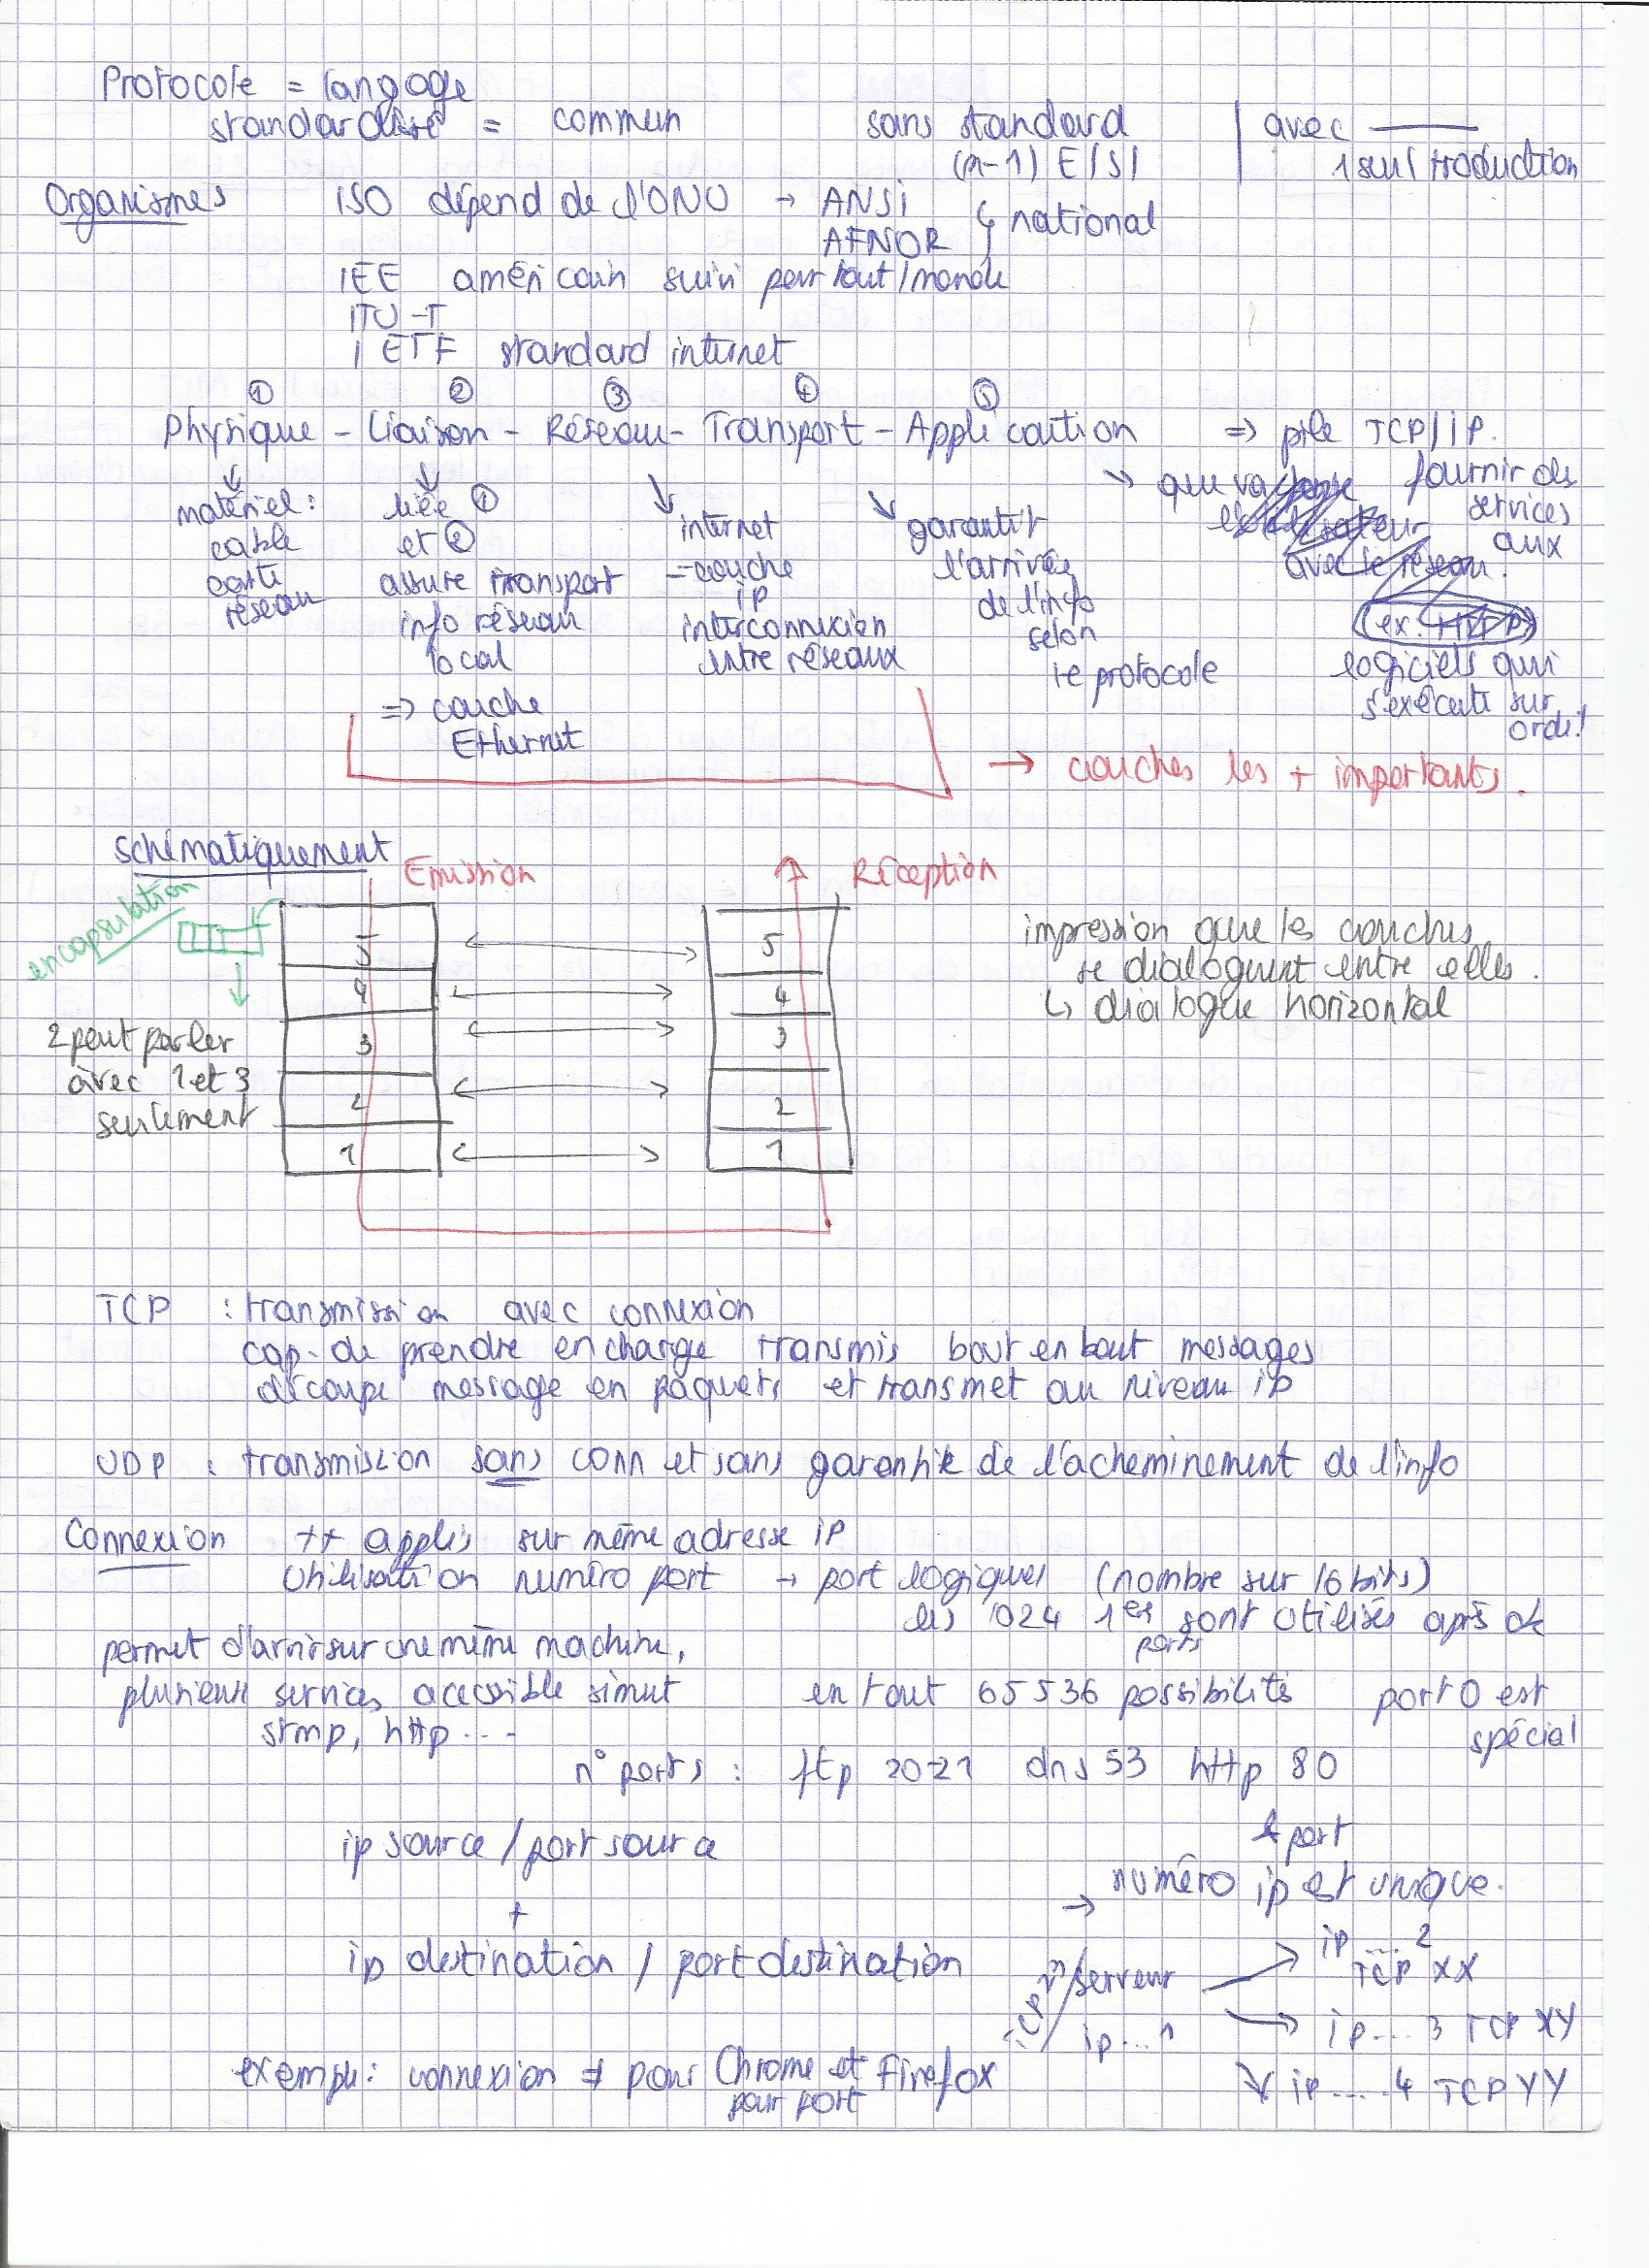 Protocole = langage
standardisé = commun
sans standard
(n-1) E/S/
avec ——
1 seul traduction
Organismes
ISO dépend de l'ONU → ANSI
AFNOR
↳ national
IEE américain suivi partout/monde
ITU-T
IETF standard internet
① ② ③ ④ ⑤
Physique - Liaison - Réseau - Transport - Application => pile TCP/IP.
matériel:
cable
carte
réseau
liée ①
et ②
assure transport
info réseau
local
=> couche
Ethernet
internet
= couche
ip
interconnexion
entre réseaux
garantit
l'arrivée
de l'info
selon
le protocole
que va
avec le réseau.
(ex: HTTP)
fournir des
services
aux
logiciels qui
s'exécute sur
ordi!
→ couches les + importants.
schématiquement
Emission
Réception
encapsulation
5 5
4 4
3 3
2 2
1 1
2 peut parler
avec 1 et 3
seulement
impression que les couches
se dialoguent entre elles.
↳ dialogue horizontal
TCP : transmission avec connexion
cap. de prendre en charge transmis bout en bout messages
découpe message en paquets et transmet au niveau ip
UDP : transmission sans conn et sans garantie de l'acheminement de l'info
Connexion ++ applis sur même adresse ip
utilisation numéro port → port logiques (nombre sur 16 bits)
les 1024 1er sont utilisés après ok
ports
permet d'avoir sur une même machine,
plusieurs services accessible simut
stmp, http ....
en tout 65536 possibilités
port 0 est
spécial
n° ports : ftp 20-21 dns 53 http 80
ip source / port source
+
ip destination / port destination
& port
→ numéro ip est unique.
TCP
serveur
ip...1
ip ....2
TCP XX
ip.... 3 TCP XY
ip .... 4 TCP YY
exemple: connexion ≠ pour Chrome et Firefox
pour port